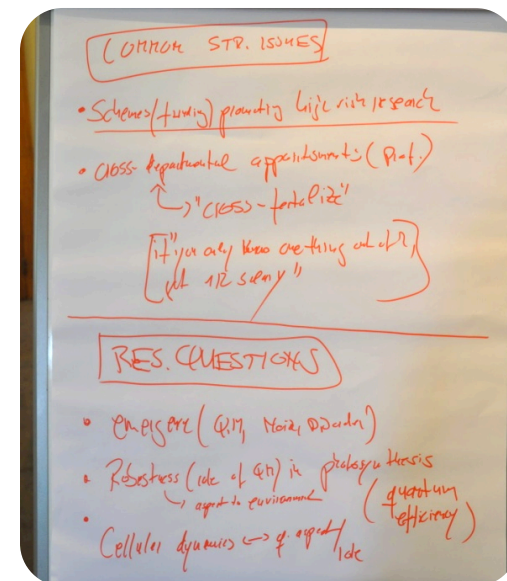 COMMON STR. ISSUES
• Schemes (funding) promoting high risk research
• cross-departmental appointments (Prof.)
"cross-fertilize"
["if you only know one thing out of 2,
get 1/2 salary"]
RES. QUESTIONS
• emergent (Q.M, Noise, Disorder)
• Robustness (role of QM) in photosynthesis
(quantum
efficiency)
• Cellular dynamics ↔ q. aspect/
role